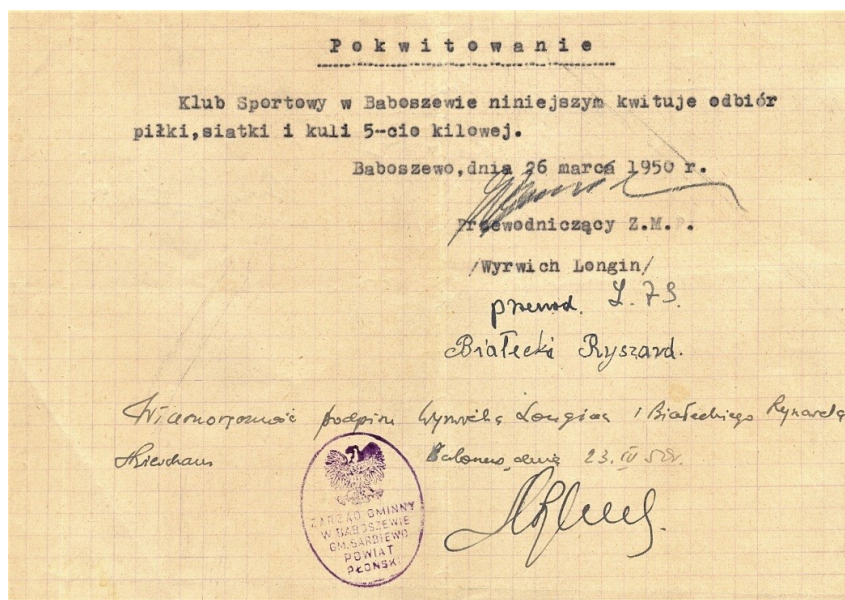 P o k w i t o w a n i e
Klub Sportowy w Baboszewie niniejszym kwituje odbiór
piłki,siatki i kuli 5-cio kilowej.
Baboszewo,dnia 26 marca 1950 r.
Przewodniczący Z.M.P.
/Wyrwich Longin/
przewod. L.Z.S.
Białecki Ryszard.
podpisu Wyrwicha Longina i Białeckiego Ryszarda
dnia 23.IV 50r.
ZARZĄD GMINNY
W BABOSZEWIE
GM. SARBIEWO
POWIAT
PŁOŃSKI